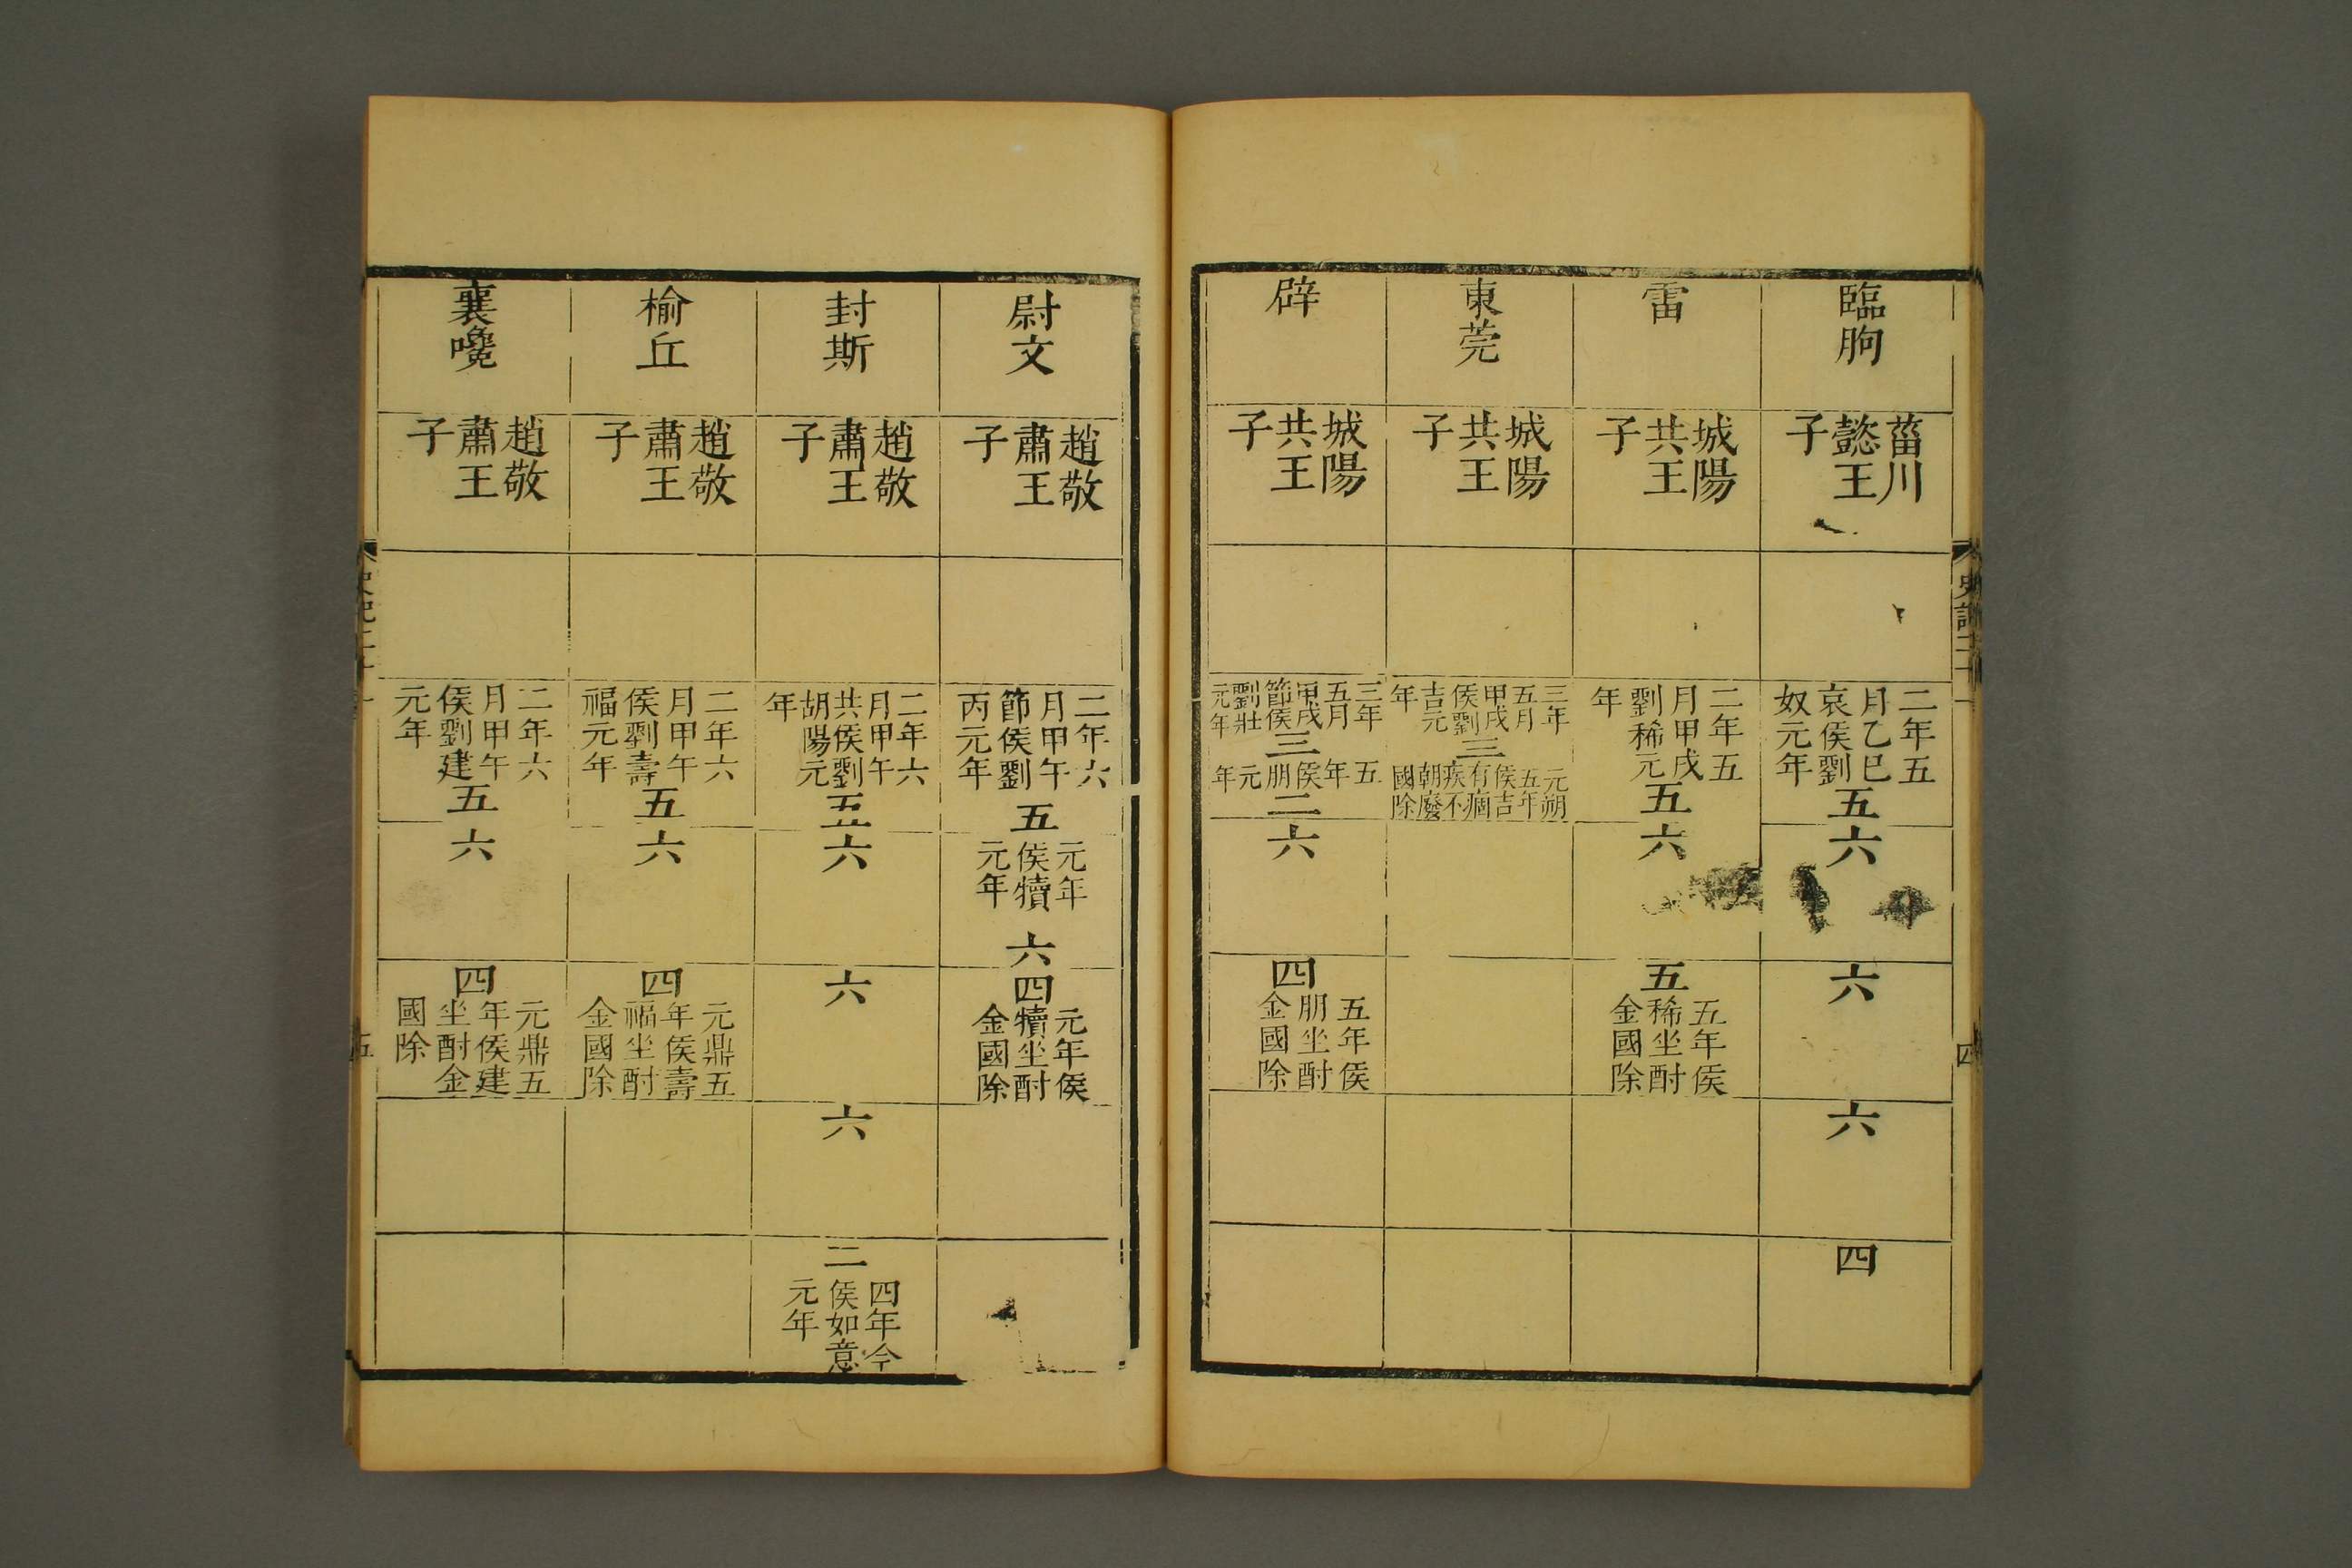 臨朐
菑川
懿王
子
二年五
月乙巳
哀侯劉
奴元年
五
六
六
六
四
雷
城陽
共王
子
二年五
月甲戌
劉稀元
年
五
六
五
五年侯
稀坐酎
金國除
東莞
城陽
共王
子
三年
五月
甲戌
侯劉
吉元
年
三
元朔
五年
侯吉
有痼
疾不
朝廢
國除
辟
城陽
共王
子
三年
五月
甲戌
節侯
劉壯
元年
三
五
年
侯
朋
元
年
二
六
四
五年侯
朋坐酎
金國除
四
尉文
趙敬
肅王
子
二年六
月甲午
節侯劉
丙元年
五
元年
侯犢
元年
六
四
元年侯
犢坐酎
金國除
封斯
趙敬
肅王
子
二年六
月甲午
共侯劉
胡陽元
年
五
六
六
六
二
四年今
侯如意
元年
榆丘
趙敬
肅王
子
二年六
月甲午
侯劉壽
福元年
五
六
四
元鼎五
年侯壽
福坐酎
金國除
襄嚵
趙敬
肅王
子
二年六
月甲午
侯劉建
元年
五
六
四
元鼎五
年侯建
坐酎金
國除